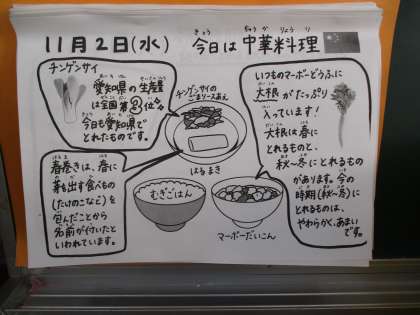 11月2日(水) 今日は中華料理
きょう ちゅうかりょうり
チンゲンサイ
愛知県の生産量
は全国第3位☆
今日も愛知県で
とれたものです。
チンゲンサイの
ごまソースあえ
いつものマーボーどうふに
大根がたっぷり
入っています！
大根は春に
とれるものと、
秋〜冬にとれるもの
があります。今の
時期(秋〜冬)に
とれるものは、
やわらかく、あまい
です。
はるまき
春巻きは、春に
芽を出す食べもの
(たけのこなど)を
包んだことから
名前が付いたと
いわれています。
むぎごはん
マーボーだいこん